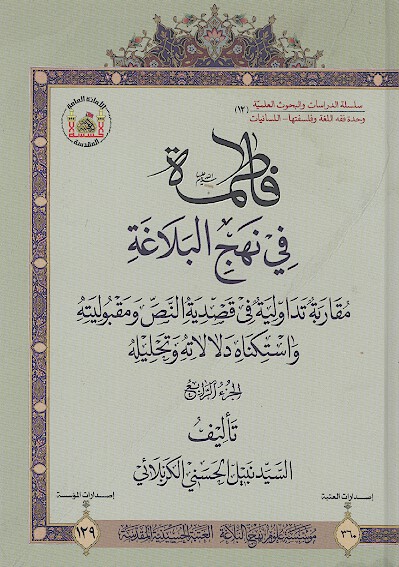 سلسلة الدراسات والبحوث العلمية (١٢)
وحدة فقه اللغة وفلسفتها - اللسانيات
الأمانة العامة
المقدسة
فاطمة
في نهج البلاغة
مقاربة تداولية في قصدية النص ومقبوليته
واستكناه دلالاته وتحليله
الجزء الرابع
تأليف
السيد نبيل الحسني الكربلائي
إصدارات العتبة
٣٦٠
إصدارات المؤسسة
١٣٩
مؤسسة علوم نهج البلاغة العتبة الحسينية المقدسة